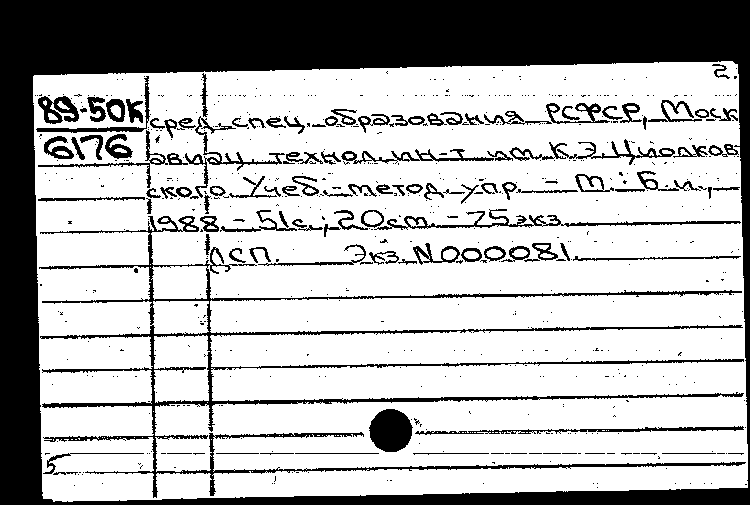 2.
89-50к
6176
сред. спец. образования РСФСР, Моск
авиац. технол. ин-т им. К.Э. Циолков
ского. Учеб.-метод. упр. - М.: Б.и.,
1988. - 51с.; 20см. - 75экз
ДСП. Экз. N000081.
5